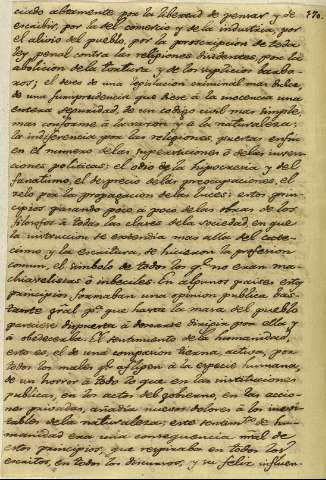 ciado altamente por la libertad de pensar y de
escribir, por la del comercio y de la industria, por
el alivio del pueblo, por la proscripcion de toda
ley penal contra las religiones disidentes, por la
abolicion de la tortura y de los suplicios barba-
ros; el deseo de una legislacion criminal mas dulce,
de una jurisprudencia que diese á la inocencia una
entera seguridad, de un codigo civil mas simple
mas conforme á la razon y á la naturaleza:
la indiferencia por las religiones, puestas enfin
en el numero de las supersticiones ó de las inven-
ciones politicas: el odio de la hipocrecia y del
fanatismo, el desprecio de las preocupaciones, el
zelo por la propagacion de las luces: estos prin-
cipios pasando poco a poco de las obras de los
filosofos á todas las clases de la sociedad, en que
la instruccion se extendia mas allá del cate-
cismo y la escritura, se hicieron la profesion
comun, el simbolo de todos los qe. no eran ma-
chiavelistas ó imbeciles. En algunos paises estos
principios formaban una opinion publica bas-
tante gral pa. que hasta la masa del pueblo
pareciese dispuesta á dexarse dirigir por ella y
á obedecerla. El sentimiento de la humanidad,
esto es, el de una compasion tierna, activa, por
todos los males qe. afligen á la especie humana,
de un horror á todo lo que en las instituciones
publicas, en los actos del gobierno, en las accio-
nes privadas, añadia nuevos dolores á los inevi-
tables de la naturaleza; este sentimto. de hu-
manidad era una consequencia natl. de
estos principios, que respiraba en todos los
escritos, en todos los discursos, y su feliz influen-